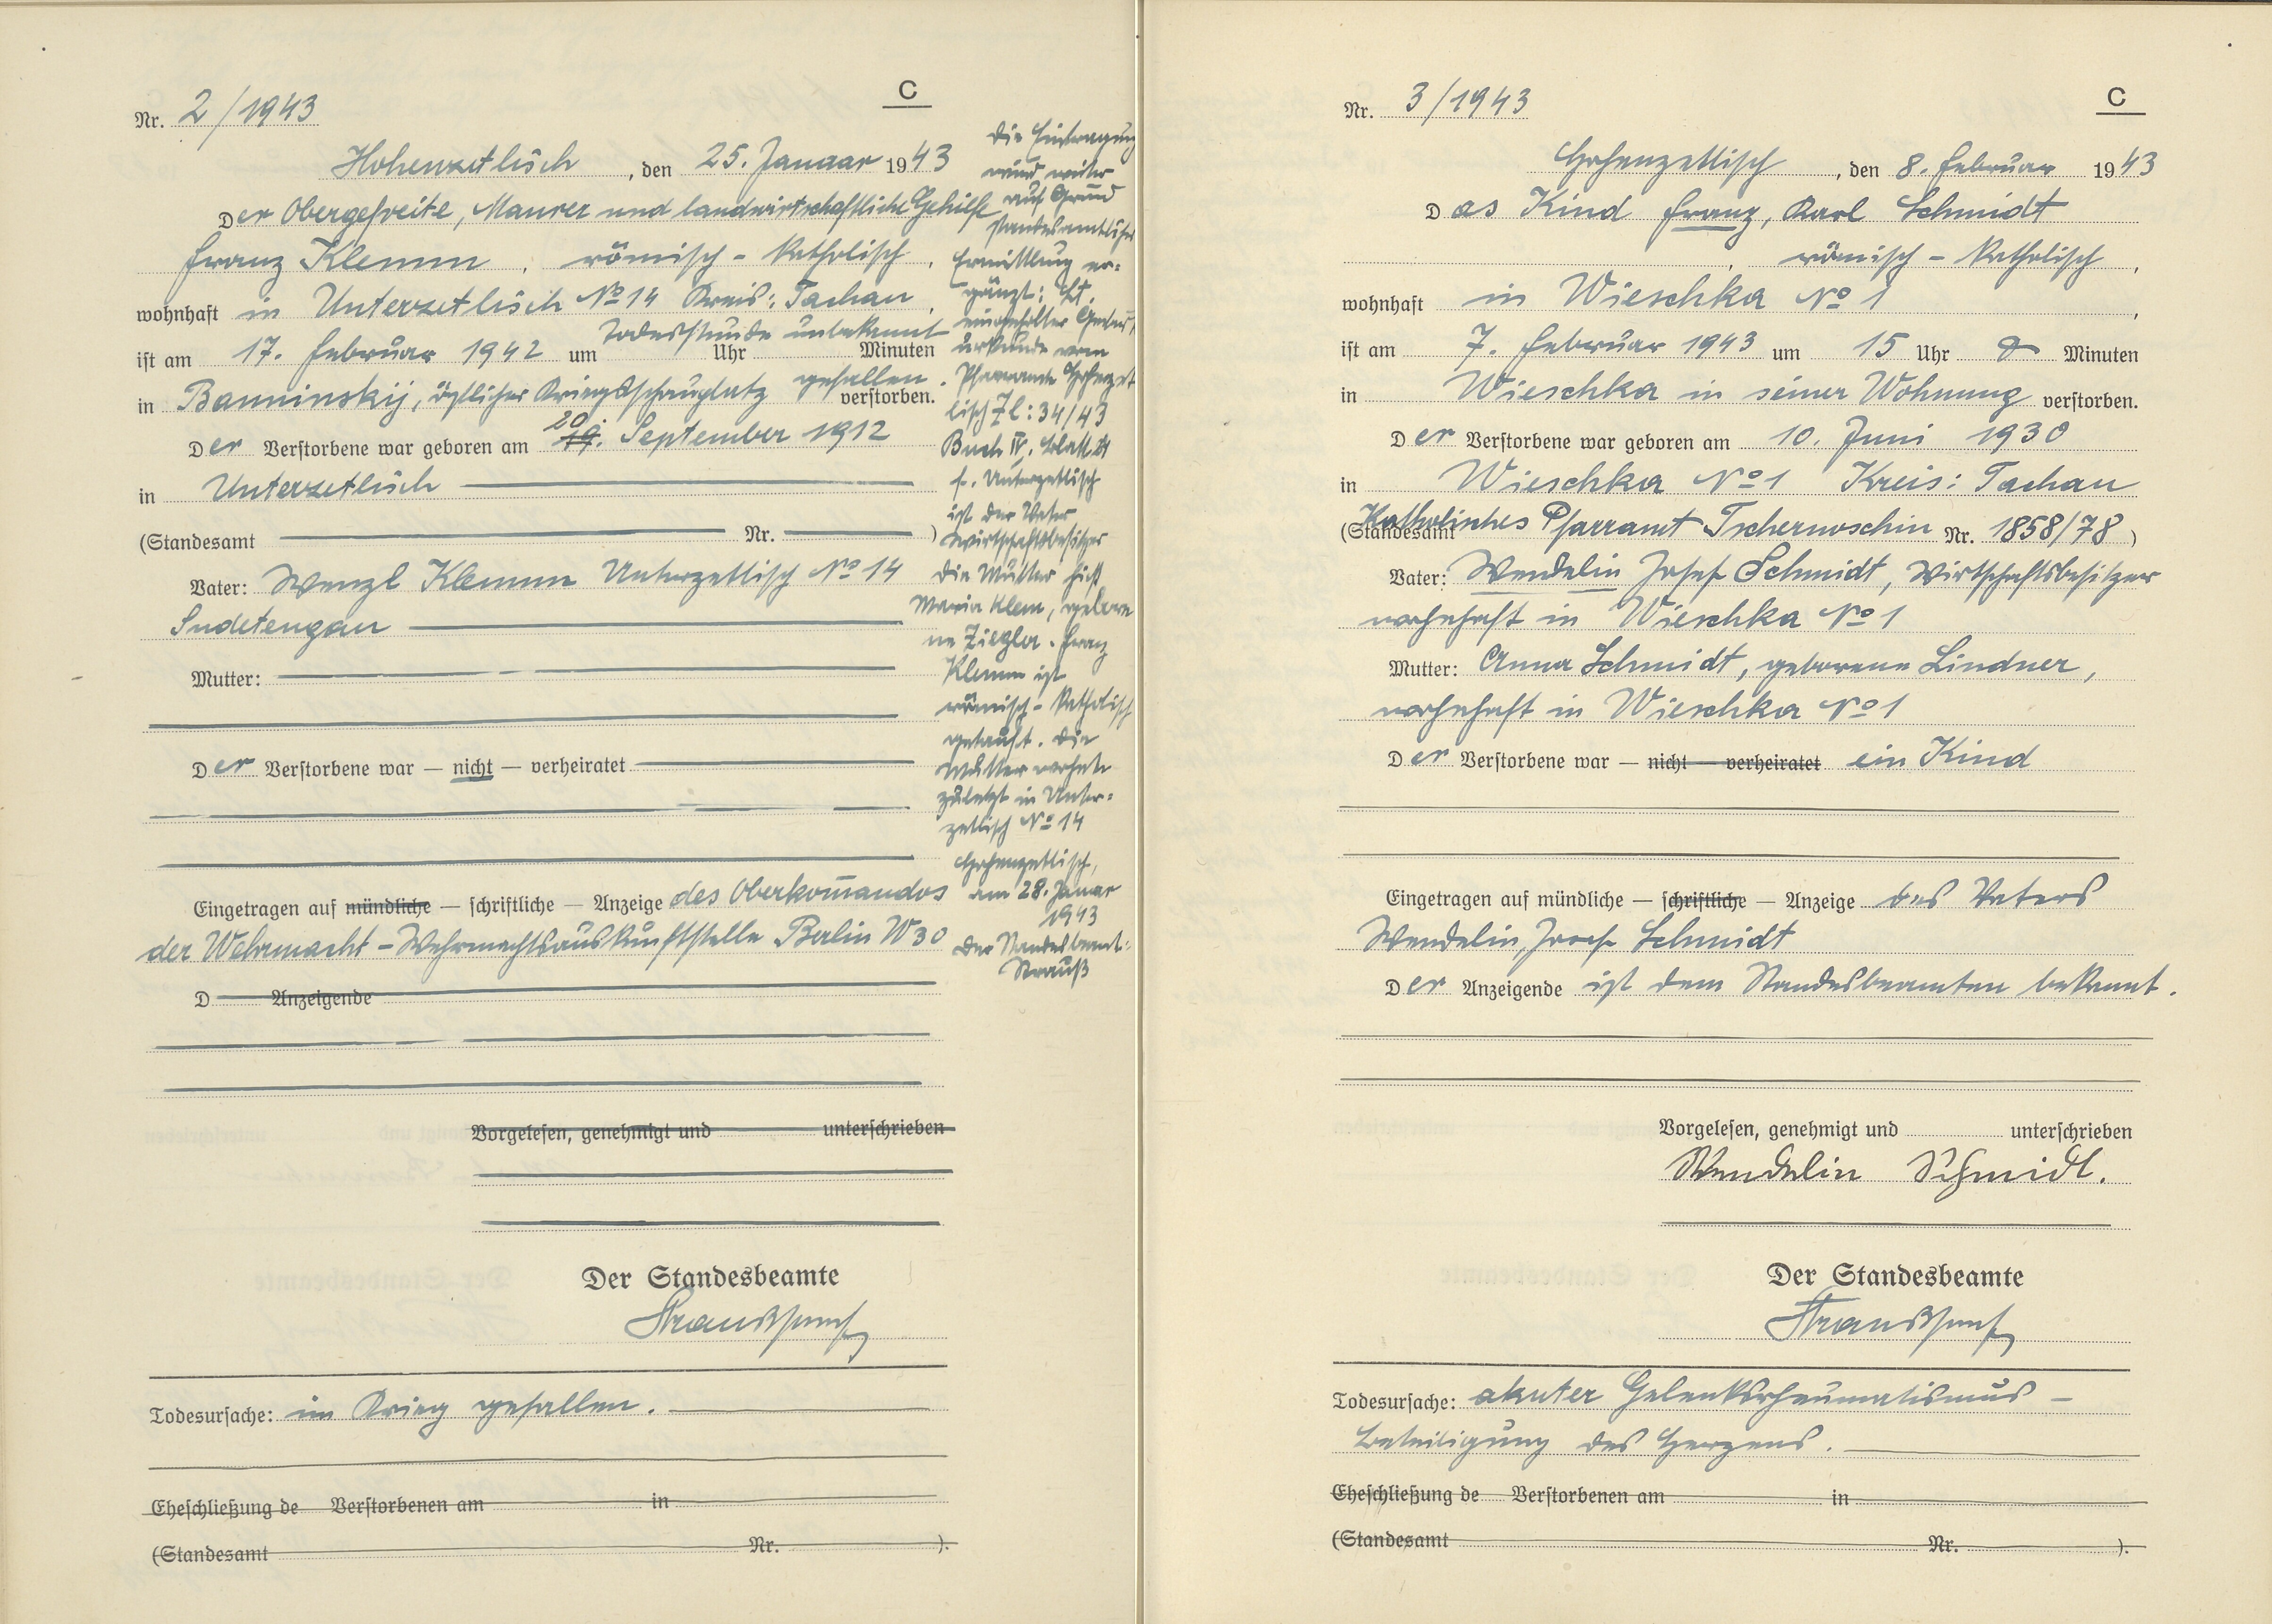 C
Nr. 2/1943
Hohenzetlisch, den 25. Januar 1943
Der Obergefreite, Maurer und landwirtschaftliche Gehilfe
Franz Klemm, römisch - katholisch,
wohnhaft in Unterzetlisch No 14 Kreis: Tachau
Todesstunde unbekannt
ist am 17. Februar 1942 um Uhr Minuten
in Banninskij, östlicher Kriegsschauplatz gefallen.
verstorben.
Der Verstorbene war geboren am 19. 20. September 1912
in Unterzetlisch
(Standesamt Nr. )
Vater: Wenzl Klemm Unterzetlisch No 14
Sudetengau
Mutter:
Der Verstorbene war — nicht — verheiratet
Eingetragen auf mündliche — schriftliche — Anzeige des Oberkom̄andos
der Wehrmacht - Wehrmachtsauskunftstelle Berlin W30
D Anzeigende
Vorgelesen, genehmigt und unterschrieben
Der Standesbeamte
Todesursache: im Krieg gefallen.
Eheschließung de Verstorbenen am in
(Standesamt Nr. ).
Die Eintragung
wird weiter
auf Grund
standesamtlicher
Ermittlung er-
gänzt: Lt.
eingeholter Geburts
urkunde vom
Pfarramte Hohenzet
lisch Zl: 34/43
Buch IV. Blatt
f. Unterzetlisch
ist der Vater
Wirtschaftsbesitzer
Die Mutter hieß
Maria Klem, gebore
ne Ziegler. Franz
Klemm ist
römisch - katholisch
getauft. Die
Mutter wohnte
zuletzt in Unter-
zetlisch No 14
Hohenzetlisch,
am 28. Januar
1943
Der Standesbeamte:
Strauß
C
Nr. 3/1943
Hohenzetlisch, den 8. Februar 1943
Das Kind Franz, Karl Schmidt
, römisch - katholisch,
wohnhaft in Wieschka No 1,
ist am 7. Februar 1943 um 15 Uhr Minuten
in Wieschka in seiner Wohnung verstorben.
Der Verstorbene war geboren am 10. Juni 1930
in Wieschka No 1 Kreis: Tachau
(Standesamt Katholisches Pfarramt Tschernoschin Nr. 1858/78)
Vater: Wendelin Josef Schmidt, Wirtschaftsbesitzer
wohnhaft in Wieschka No 1
Mutter: Anna Schmidt, geborene Lindner,
wohnhaft in Wieschka No 1
Der Verstorbene war — nicht — verheiratet ein Kind
Eingetragen auf mündliche — schriftliche — Anzeige des Vaters
Wendelin, Josef Schmidt
Der Anzeigende ist dem Standesbeamten bekannt.
Vorgelesen, genehmigt und unterschrieben
Wendelin Schmidt.
Der Standesbeamte
Todesursache: akuter Gelenksrheumatismus -
Beteiligung des Herzens.
Eheschließung de Verstorbenen am in
(Standesamt Nr. ).